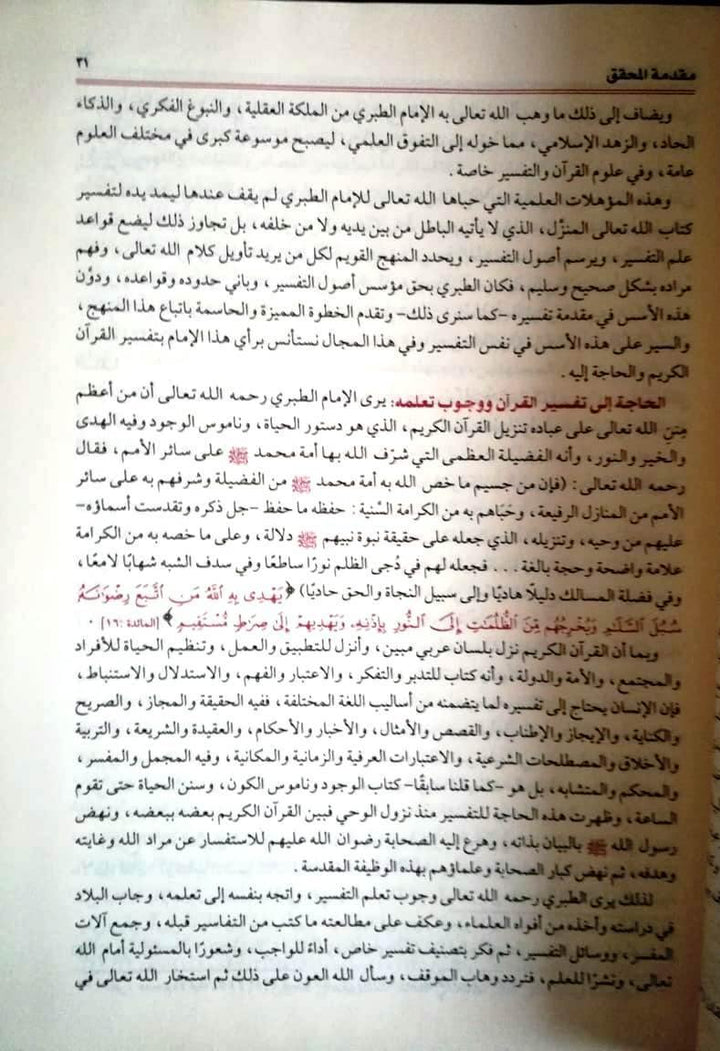 مقدمة المحقق ٣١
ويضاف إلى ذلك ما وهب الله تعالى به الإمام الطبري من الملكة العقلية، والنبوغ الفكري، والذكاء
الحاد، والزهد الإسلامي، مما خوله إلى التفوق العلمي، ليصبح موسوعة كبرى في مختلف العلوم
عامة، وفي علوم القرآن والتفسير خاصة.
وهذه المؤهلات العلمية التي حباها الله تعالى للإمام الطبري لم يقف عندها ليمد يده لتفسير
كتاب الله تعالى المنزَّل، الذي لا يأتيه الباطل من بين يديه ولا من خلفه، بل تجاوز ذلك ليضع قواعد
علم التفسير، ويرسم أصول التفسير، ويحدد المنهج القويم لكل من يريد تأويل كلام الله تعالى، وفهم
مراده بشكل صحيح وسليم، فكان الطبري بحق مؤسس أصول التفسير، وباني حدوده وقواعده، ودوَّن
هذه الأسس في مقدمة تفسيره -كما سنرى ذلك- وتقدم الخطوة المميزة والحاسمة باتباع هذا المنهج،
والسير على هذه الأسس في نفس التفسير وفي هذا المجال نستأنس برأي هذا الإمام بتفسير القرآن
الكريم والحاجة إليه.
الحاجة إلى تفسير القرآن ووجوب تعلمه: يرى الإمام الطبري رحمه الله تعالى أن من أعظم
مِنَنِ الله تعالى على عباده تنزيل القرآن الكريم، الذي هو دستور الحياة، وناموس الوجود وفيه الهدى
والخير والنور، وأنه الفضيلة العظمى التي شرّف الله بها أمة محمد ﷺ على سائر الأمم، فقال
رحمه الله تعالى: (فإن من جسيم ما خص الله به أمة محمد ﷺ من الفضيلة وشرفهم به على سائر
الأمم من المنازل الرفيعة، وحَبَاهم به من الكرامة السَّنية: حفظه ما حفظ -جل ذكره وتقدست أسماؤه-
عليهم من وحيه، وتنزيله، الذي جعله على حقيقة نبوة نبيهم ﷺ دلالة، وعلى ما خصه به من الكرامة
علامة واضحة وحجة بالغة... فجعله لهم في دُجى الظلم نورًا ساطعًا وفي سدف الشبه شهابًا لامعًا،
وفي فضلة المسالك دليلًا هاديًا وإلى سبيل النجاة والحق حاديًا) ﴿يَهْدِى بِهِ ٱللَّهُ مَنِ ٱتَّبَعَ رِضْوَانَهُ
سُبُلَ ٱلسَّلَٰمِ وَيُخْرِجُهُم مِّنَ ٱلظُّلُمَٰتِ إِلَى ٱلنُّورِ بِإِذْنِهِ، وَيَهْدِيهِمْ إِلَىٰ صِرَٰطٍ مُّسْتَقِيمٍ﴾ [المائدة: ١٦].
وبما أن القرآن الكريم نزل بلسان عربي مبين، وأنزل للتطبيق والعمل، وتنظيم الحياة للأفراد
والمجتمع، والأمة والدولة، وأنه كتاب للتدبر والتفكر، والاعتبار والفهم، والاستدلال والاستنباط،
فإن الإنسان يحتاج إلى تفسيره لما يتضمنه من أساليب اللغة المختلفة، ففيه الحقيقة والمجاز، والصريح
والكناية، والإيجاز والإطناب، والقصص والأمثال، والأخبار والأحكام، والعقيدة والشريعة، والتربية
والأخلاق والمصطلحات الشرعية، والاعتبارات العرفية والزمانية والمكانية، وفيه المجمل والمفسر،
والمحكم والمتشابه، بل هو -كما قلنا سابقًا- كتاب الوجود وناموس الكون، وسنن الحياة حتى تقوم
الساعة، وظهرت هذه الحاجة للتفسير منذ نزول الوحي فبين القرآن الكريم بعضه ببعضه، ونهض
رسول الله ﷺ بالبيان بذاته، وهرع إليه الصحابة رضوان الله عليهم للاستفسار عن مراد الله وغايته
وهدفه، ثم نهض كبار الصحابة وعلماؤهم بهذه الوظيفة المقدسة.
لذلك يرى الطبري رحمه الله تعالى وجوب تعلم التفسير، واتجه بنفسه إلى تعلمه، وجاب البلاد
في دراسته وأخذه من أفواه العلماء، وعكف على مطالعته ما كتب من التفاسير قبله، وجمع آلات
المفسر، ووسائل التفسير، ثم فكر بتصنيف تفسير خاص، أداءً للواجب، وشعورًا بالمسئولية أمام الله
تعالى، ونشرًا للعلم، فتردد وهاب الموقف، وسأل الله العون على ذلك ثم استخار الله تعالى في